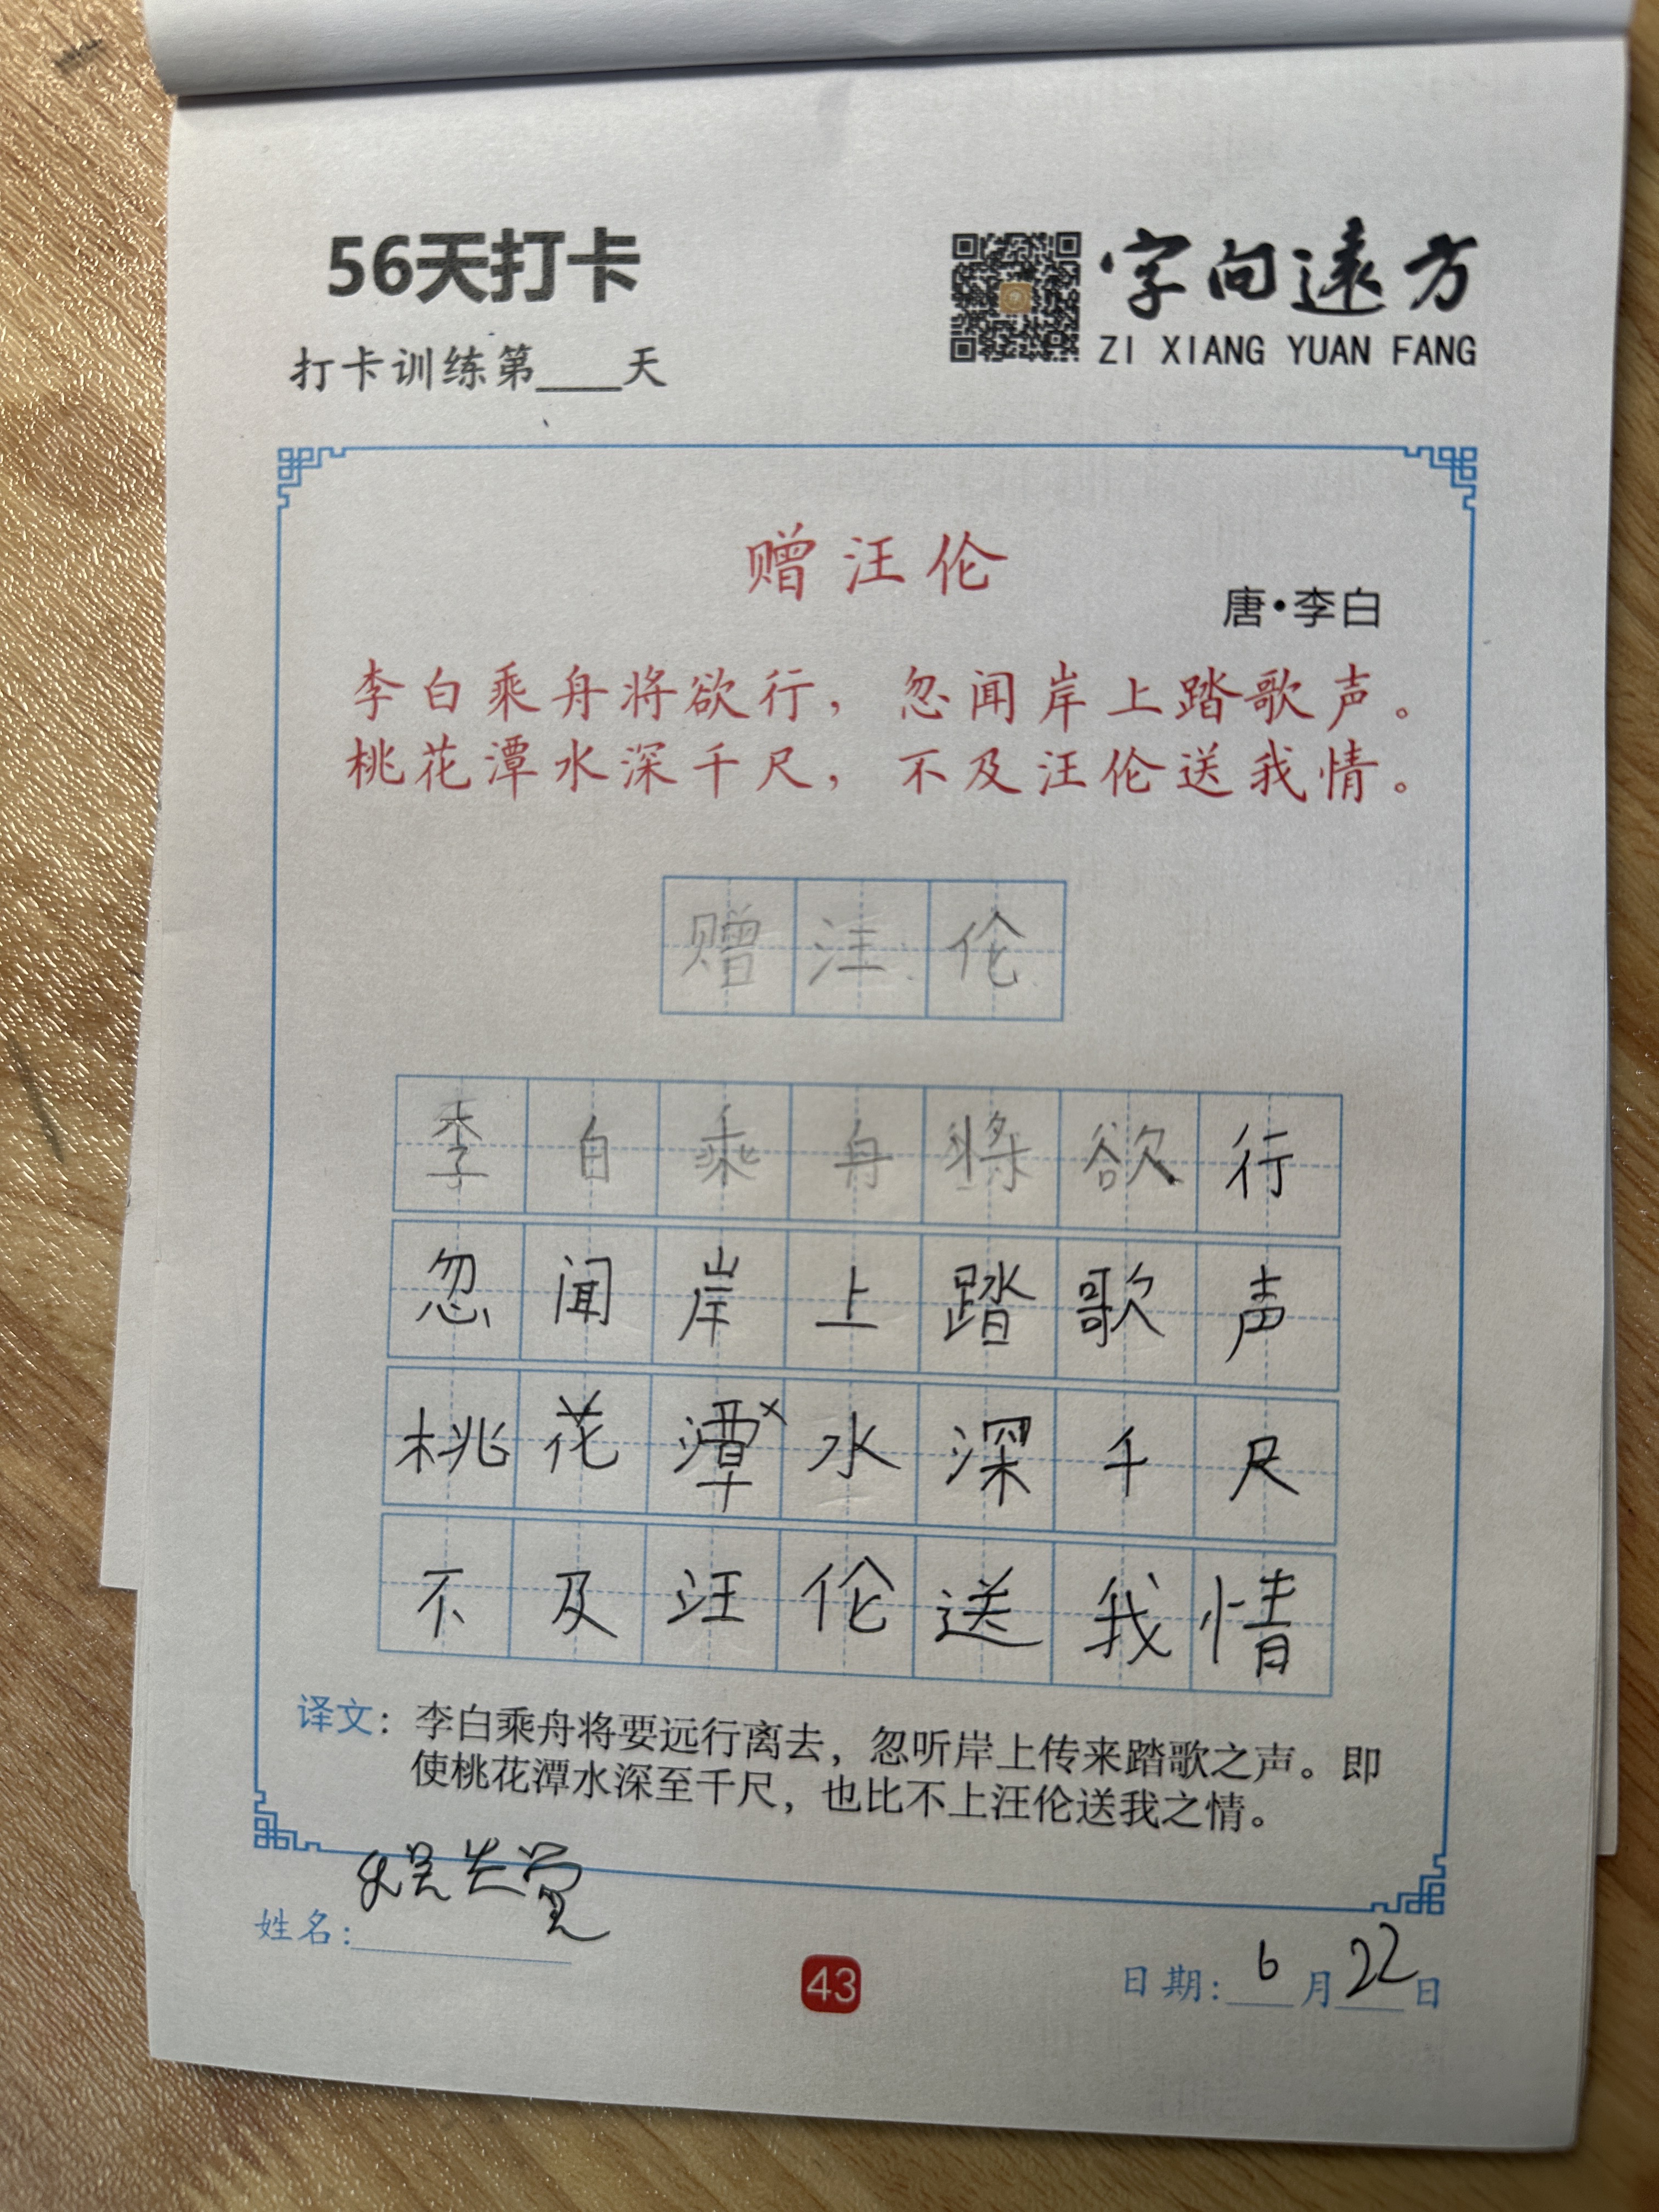 56天打卡
字向遠方
ZI XIANG YUAN FANG
打卡训练第____天
赠汪伦
唐·李白
李白乘舟将欲行，忽闻岸上踏歌声。
桃花潭水深千尺，不及汪伦送我情。
赠汪伦
李白乘舟将欲行
忽闻岸上踏歌声
桃花潭×水深千尺
不及汪伦送我情
译文：李白乘舟将要远行离去，忽听岸上传来踏歌之声。即
使桃花潭水深至千尺，也比不上汪伦送我之情。
姓名：
43
日期：6月22日